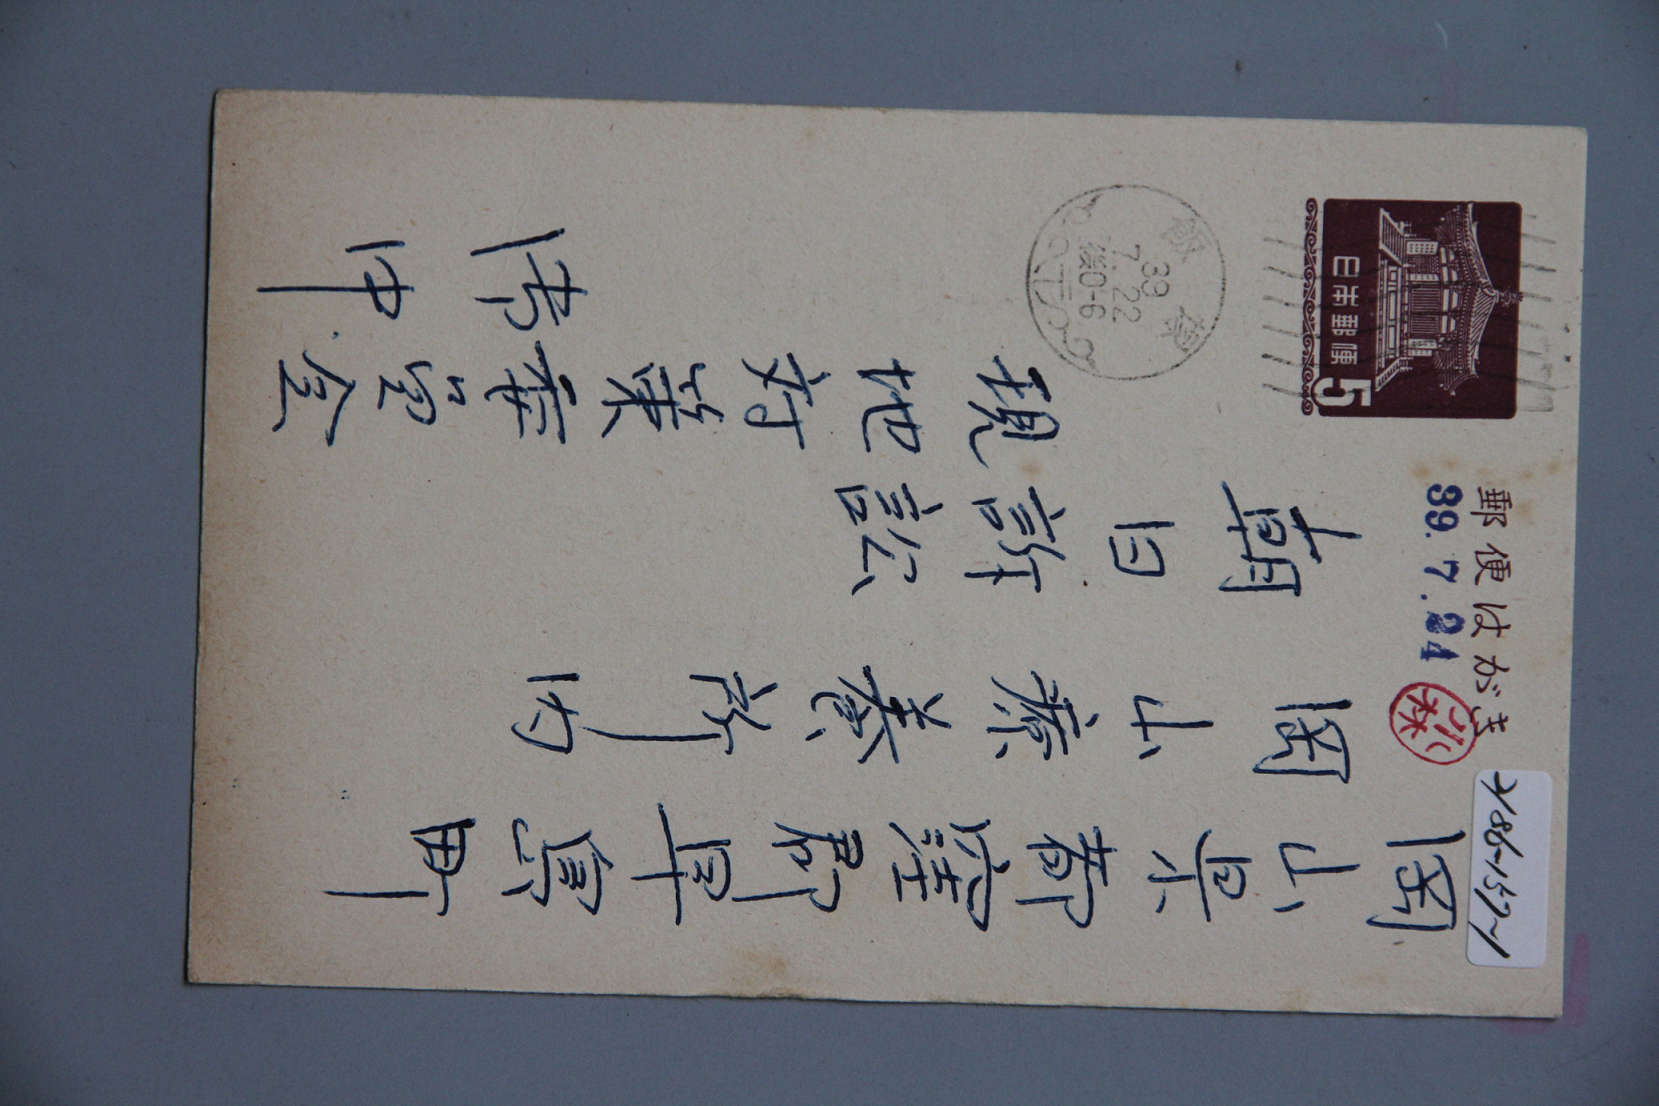 郵便はがき
日本郵便
5
39
7.22
後0-6
39.7.24
小林
岡山県都窪郡早島町
岡山療養所内
朝日訴訟
現地対策委員会
御中